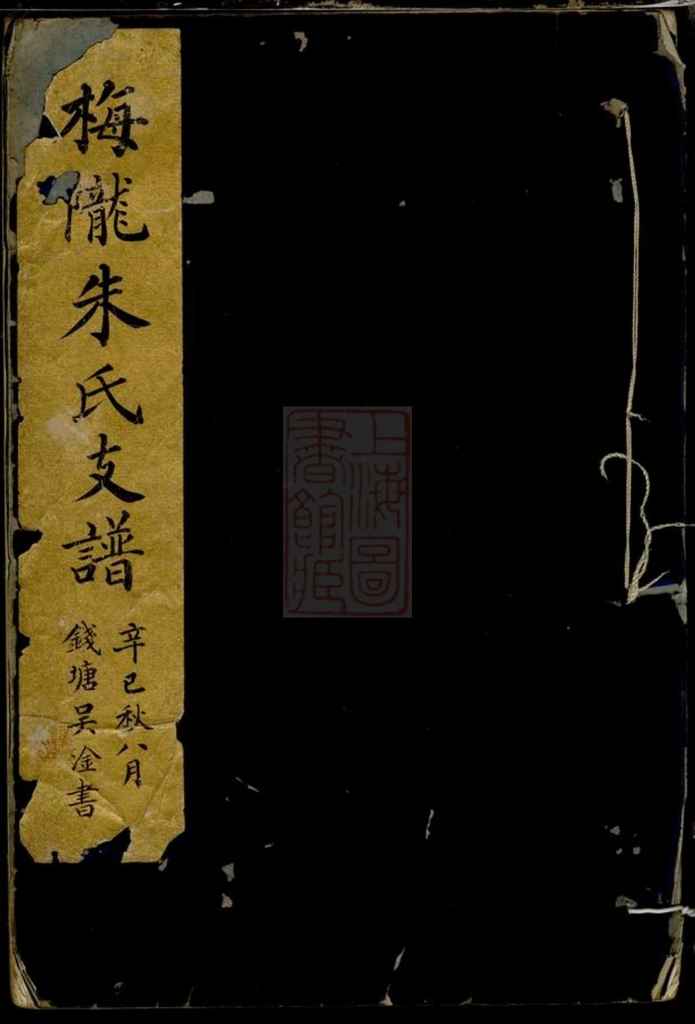 梅隴朱氏支譜
辛巳秋八月
錢塘吴淦書
上海圖書館藏